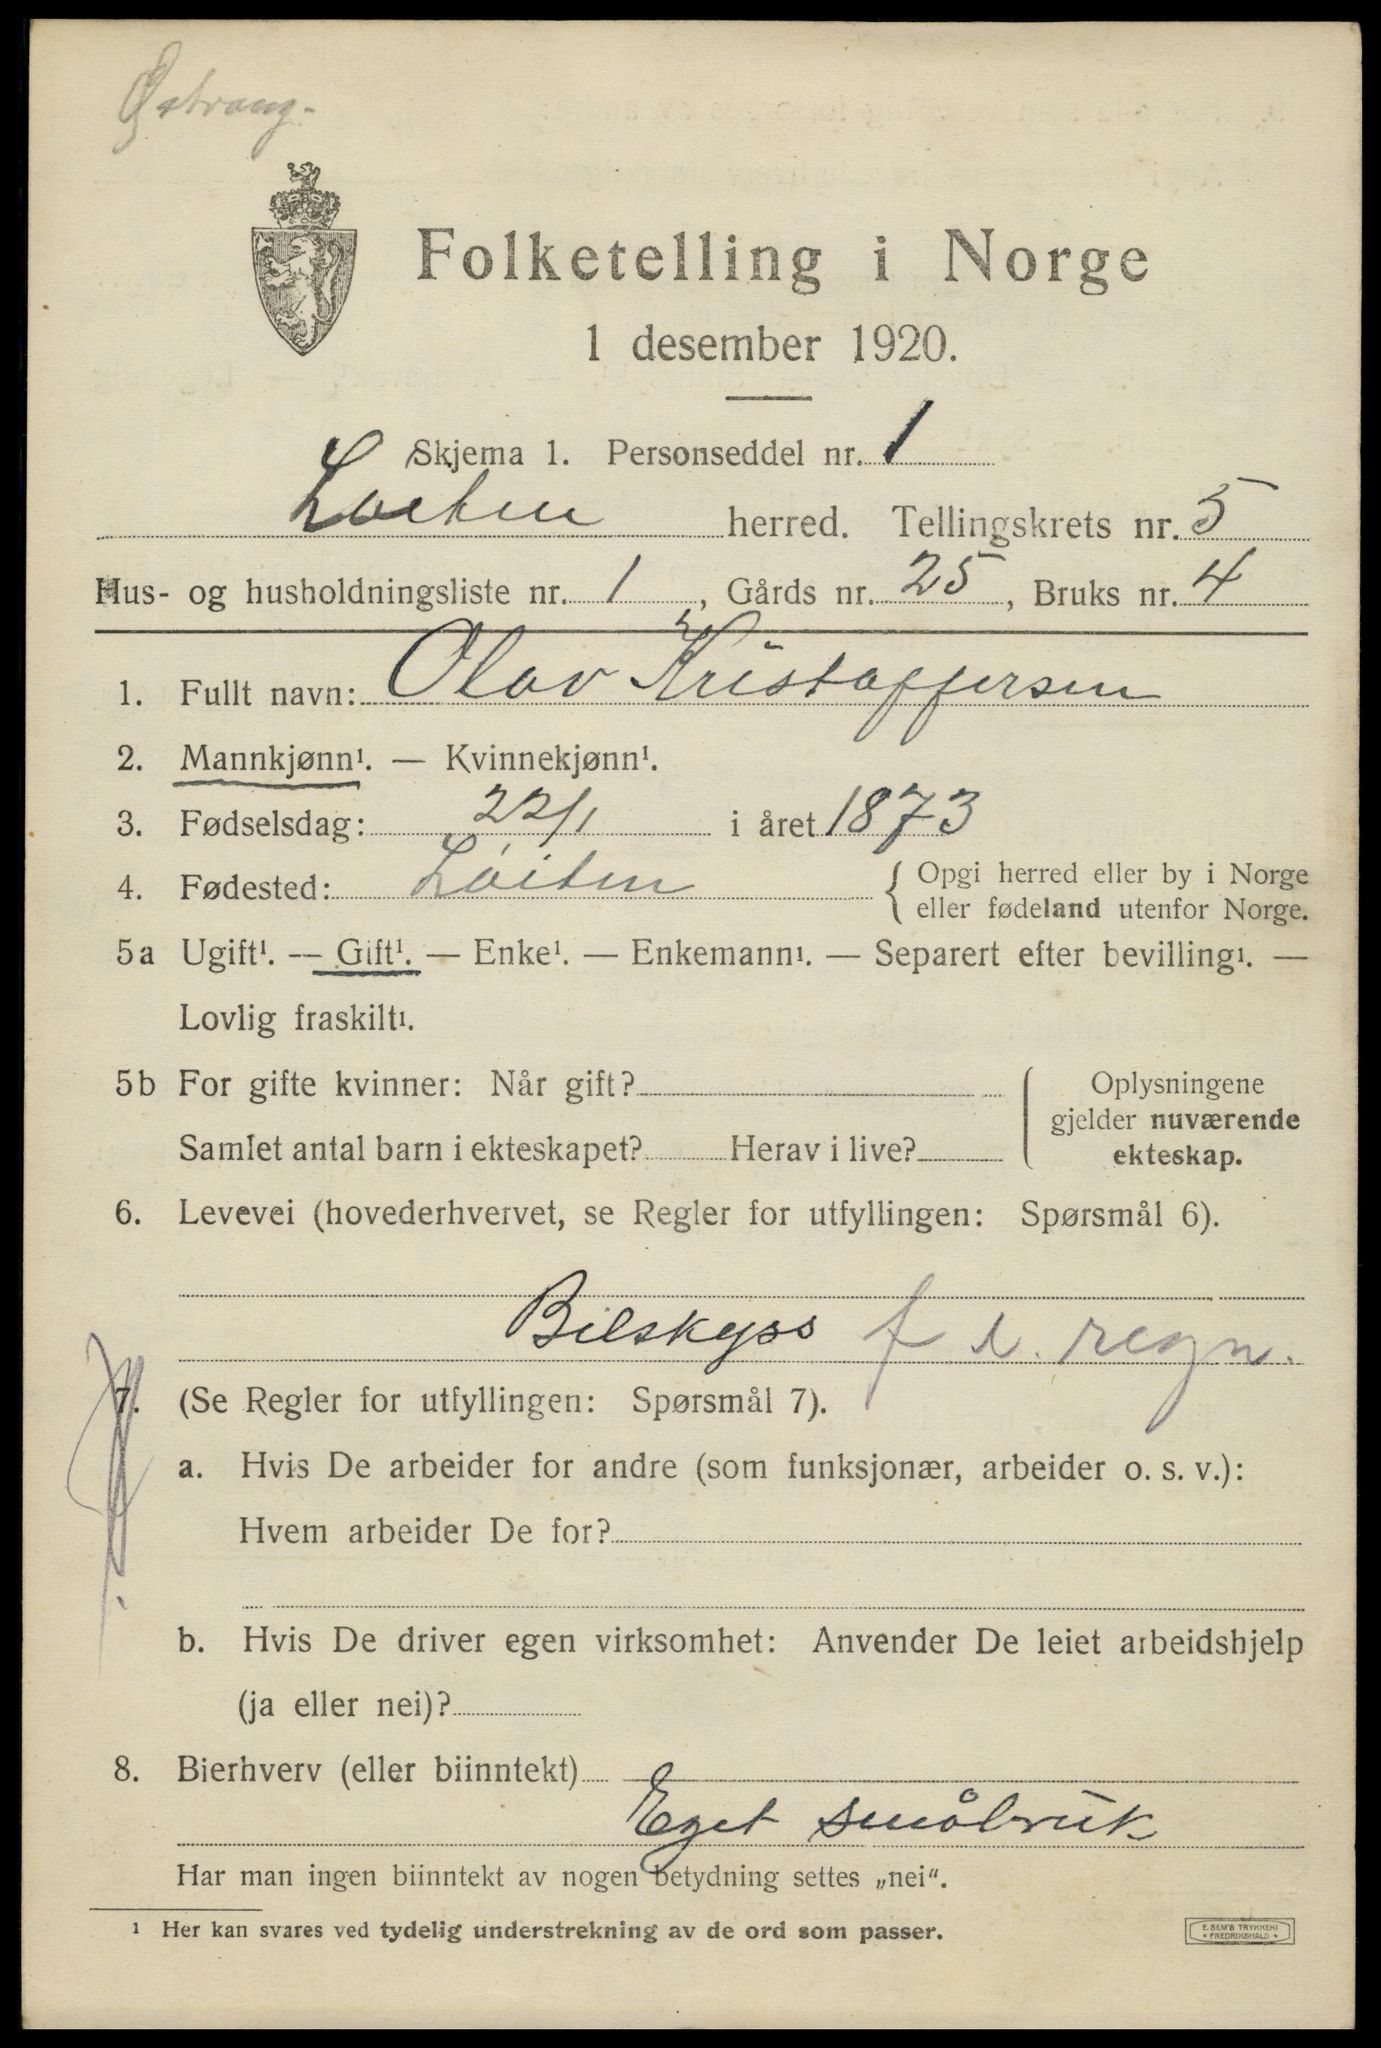 Østvang.
Folketelling i Norge
1 desember 1920.
Skjema 1. Personseddel nr. 1
Løiten herred. Tellingskrets nr. 5
Hus- og husholdningsliste nr. 1, Gårds nr. 25, Bruks nr. 4
1. Fullt navn: Olav Kristoffersen
2. Mannkjønn¹. — Kvinnekjønn¹.
3. Fødselsdag: 22/1 i året 1873
4. Fødested: Løiten { Opgi herred eller by i Norge
eller fødeland utenfor Norge.
5a Ugift¹. — Gift¹. — Enke¹. — Enkemann¹. — Separert efter bevilling¹. —
Lovlig fraskilt¹.
5b For gifte kvinner: Når gift?
Samlet antal barn i ekteskapet? Herav i live?
Oplysningene
gjelder nuværende
ekteskap.
6. Levevei (hovederhvervet, se Regler for utfyllingen: Spørsmål 6).
Bilskyss f e. regn.
7. (Se Regler for utfyllingen: Spørsmål 7).
a. Hvis De arbeider for andre (som funksjonær, arbeider o. s. v.):
Hvem arbeider De for?
b. Hvis De driver egen virksomhet: Anvender De leiet arbeidshjelp
(ja eller nei)?
8. Bierhverv (eller biinntekt)
Eget småbruk
Har man ingen biinntekt av nogen betydning settes „nei".
¹ Her kan svares ved tydelig understrekning av de ord som passer.
E. SEM'S TRYKKERI
• FREDRIKSHALD •